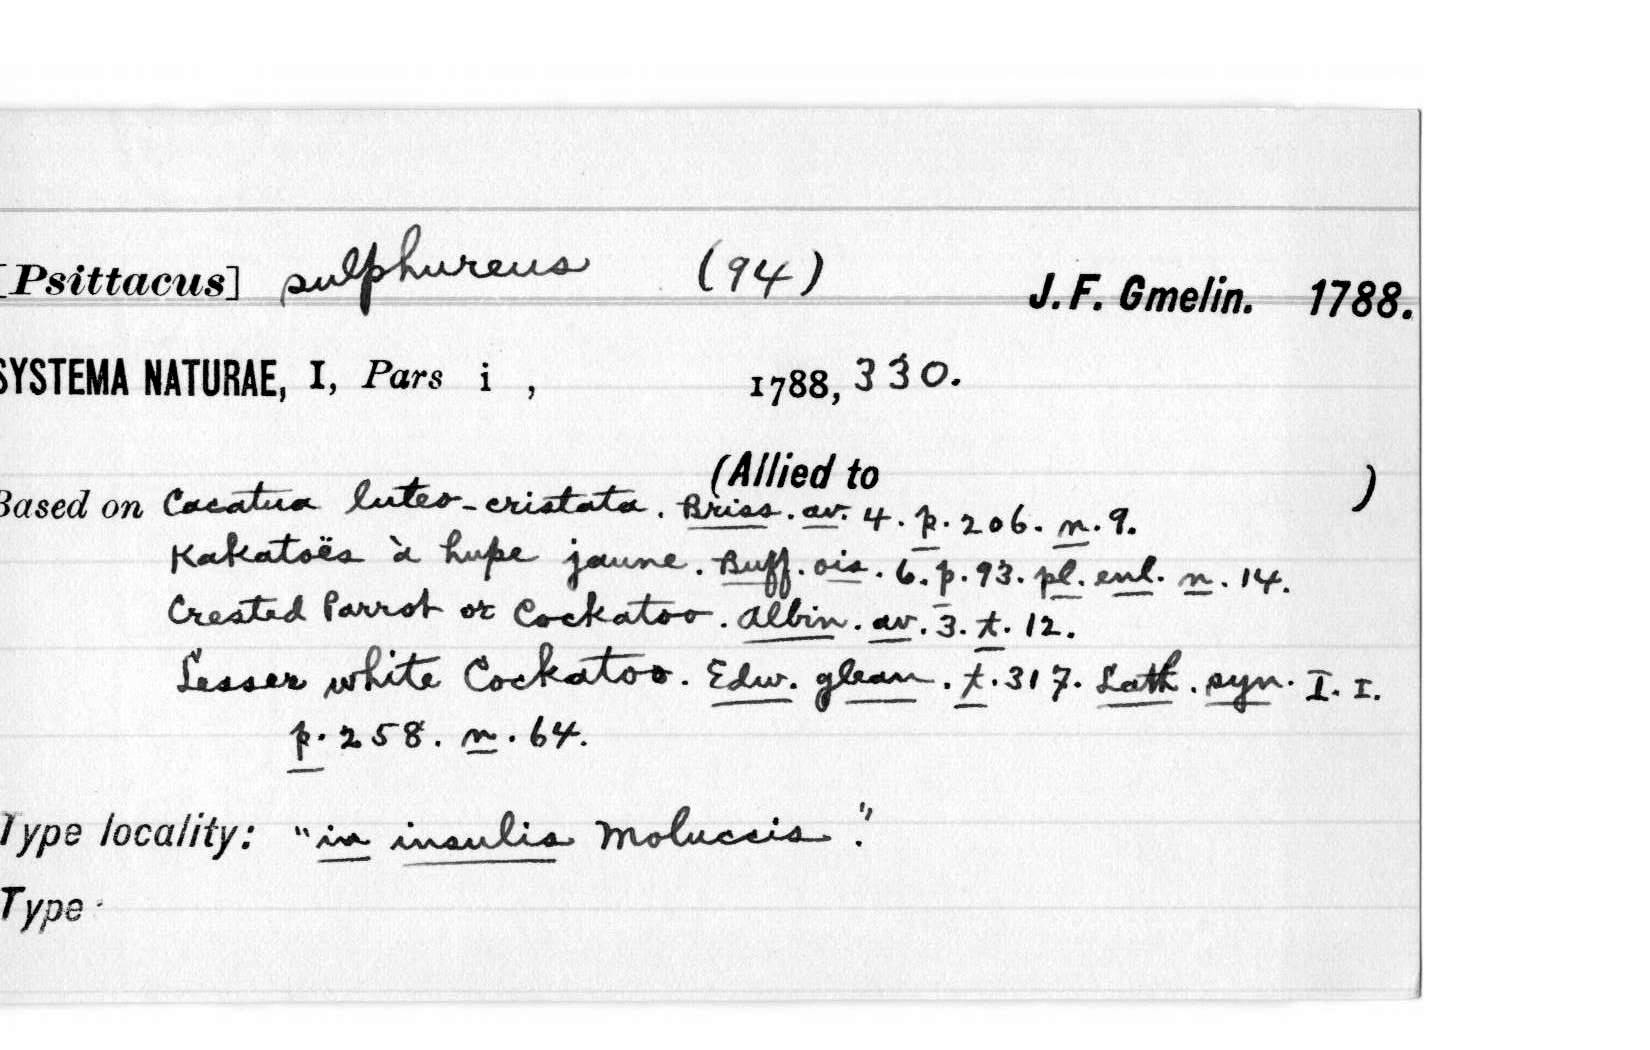 [Psittacus] sulphureus (94) J. F. Gmelin. 1788.
SYSTEMA NATURAE, I, Pars i , 1788, 330.
(Allied to )
Based on Cacatua luteo-cristata. Briss. av. 4. p. 206. n. 9.
Kakatoës à hupe jaune. Buff. ois. 6. p. 93. pl. enl. n. 14.
Crested Parrot or Cockatoo. Albin. av. 3. t. 12.
Lesser white Cockatoo. Edw. glean. t. 317. Lath. syn. I. I.
p. 258. n. 64.
Type locality: "in insulis Moluccis."
Type